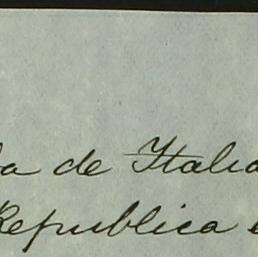 de Italia
Republica